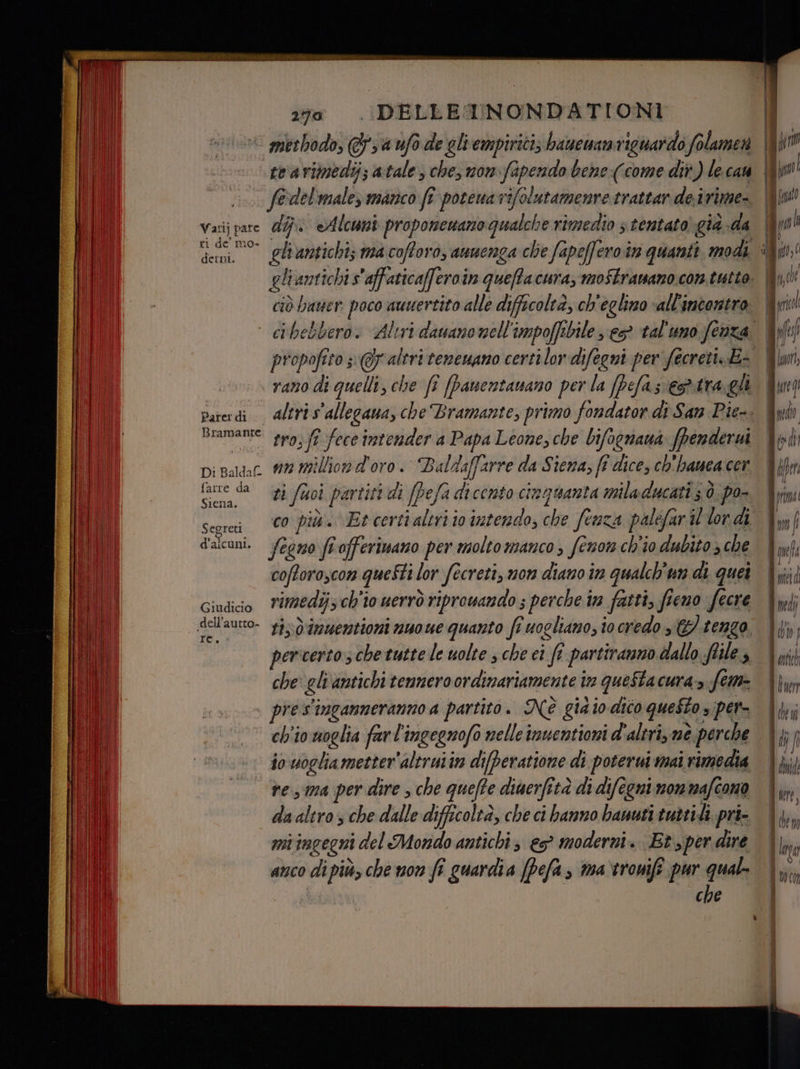 270 DELLE INONDATIONI
methodo, & a uſo de gli empirici, haueuan riguardo ſolamen
te a rimedij; a tale, che, non ſapendo bene (come dir) le cau
ſe del male, manco ſi poteua riſolutamente trattar de i rime-
Varij pare
ri de' mo-
derni.
dij. Alcuni proponeuano qualche rimedio, tentato già da
gli antichi; ma coſtoro, auuenga che ſapeſſero in quanti modi
gli antichi s'affaticaſſero in queſta cura, moſtrauano con tutto
ciò hauer poco auuertito alle difficoltà, ch'eglino all'incontro
ci hebbero. Altri dauano nell'impoſſibile, es tal'uno ſenza
propoſito; & altri teneuano certi lor diſegni per ſecreti. E-
rano di quelli, che ſi ſpauentauano per la ſpeſa; es tra gli
Parer di
Bramante
altri s'allegaua, che Bramante, primo fondator di San Pie-
tro, ſi fece intender a Papa Leone, che biſognaua ſpenderui
Di Baldaſ-
ſarre da
Siena.
un million d'oro. Baldaſſarre da Siena, ſi dice, ch'hauea cer
ti ſuoi partiti di ſpeſa di cento cinquanta mila ducati; ò po-
Segreti
d'alcuni.
co più. Et certi altri io intendo, che ſenza paleſar il lor di
ſegno ſi offeriuano per molto manco, ſenon ch'io dubito, che
coſtoro, con queſti lor ſecreti, non diano in qualch'un di quei
Giudicio
dell'autto-
re.
rimedij, ch'io uerrò riprouando; perche in fatti, ſieno ſecre
ti, ò inuentioni nuoue quanto ſi uogliano, io credo, & tengo
per certo, che tutte le uolte, che ci ſi partiranno dallo ſtile,
che gli antichi tennero ordinariamente in queſta cura, ſem-
pre s'inganneranno a partito. Nè già io dico queſto, per-
ch'io uoglia far l'ingegnoſo nelle inuentioni d'altri, nè perche
io uoglia metter'altrui in diſperatione di poterui mai rimedia
re, ma per dire, che queſte diuerſità di diſegni non naſcono
da altro, che dalle difficoltà, che ci hanno hauuti tutti li pri-
mi ingegni del Mondo antichi, es moderni. Et, per dire
anco di più, che non ſi guardi a ſpeſa, ma trouiſi pur qual-
che